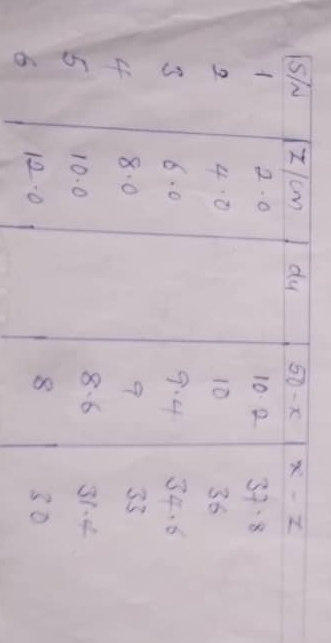 S/N Z/cm dy 50-x x-z
1 2.0 10.2 37.8
2 4.0 10 36
3 6.0 9.4 34.6
4 8.0 9 33
5 10.0 8.6 31.4
6 12.0 8 30